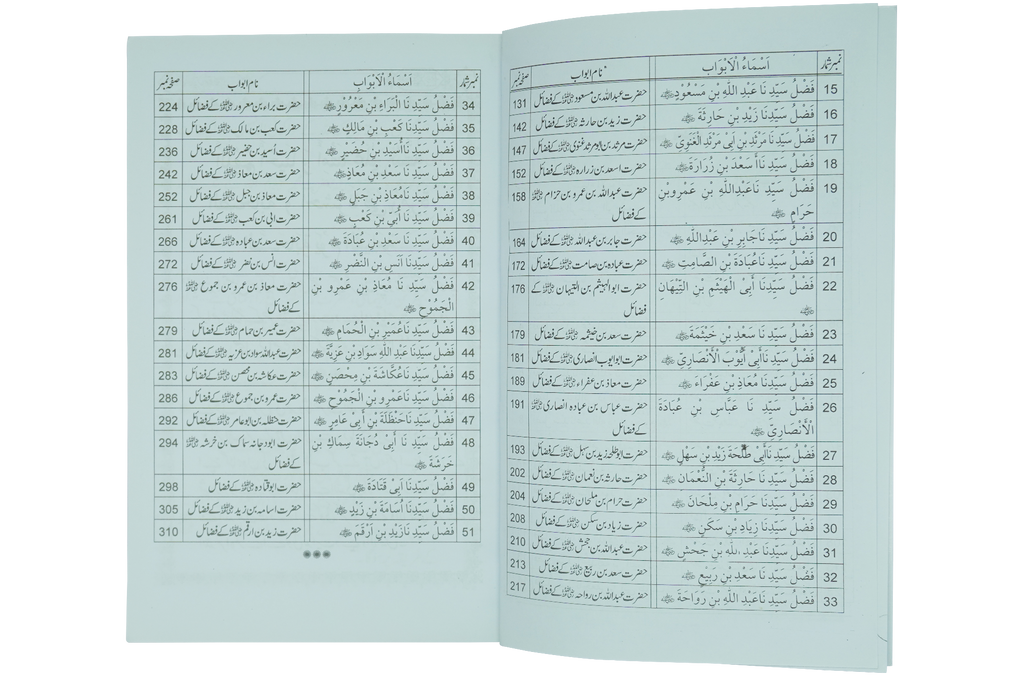 نمبر شمار اَسْمَاءُ الْاَبْوَاب نام ابواب صفحہ نمبر
15 فَضْلُ سَيِّدِ نَا عَبْدِ اللَّهِ بْنِ مَسْعُوْدٍ ؓ حضرت عبداللہ بن مسعود ؓ کے فضائل 131
16 فَضْلُ سَيِّدِ نَا زَيْدِ بْنِ حَارِثَةَ ؓ حضرت زید بن حارثہ ؓ کے فضائل 142
17 فَضْلُ سَيِّدِ نَا مَرْثَدِ بْنِ اَبِى مَرْثَدِ الْغَنَوِيِّ ؓ حضرت مرثد بن ابو مرثد غنوی ؓ کے فضائل 147
18 فَضْلُ سَيِّدِ نَا أَسْعَدَ بْنِ زُرَارَةَ ؓ حضرت اسعد بن زرارہ ؓ کے فضائل 152
19 فَضْلُ سَيِّدِ نَا عَبْدِاللَّهِ بْنِ عَمْرِوبْنِ حضرت عبداللہ بن عمرو بن حزام ؓ 158
حَرَامٍ ؓ کے فضائل
20 فَضْلُ سَيِّدِ نَا جَابِرِ بْنِ عَبْدِاللَّهِ ؓ حضرت جابر بن عبداللہ ؓ کے فضائل 164
21 فَضْلُ سَيِّدِ نَا عُبَادَةَ بْنِ الصَّامِتِ ؓ حضرت عبادہ بن صامت ؓ کے فضائل 172
22 فَضْلُ سَيِّدِنَا أَبِىْ الْهَيْثَمِ بْنِ التِّيْهَانِ حضرت ابوالہیثم بن التیہان ؓ کے 176
ؓ فضائل
23 فَضْلُ سَيِّدِ نَا سَعْدِ بْنِ خَيْثَمَةَ ؓ حضرت سعد بن خیثمہ ؓ کے فضائل 179
24 فَضْلُ سَيِّدِ نَا أَبِىْ أَيُّوْبَ الْأَنْصَارِيِّ ؓ حضرت ابوایوب انصاری ؓ کے فضائل 181
25 فَضْلُ سَيِّدِنَا مُعَاذِ بْنِ عَفْرَاءَ ؓ حضرت معاذ بن عفراء ؓ کے فضائل 189
26 فَضْلُ سَيِّدِ نَا عَبَّاسِ بْنِ عُبَادَةَ حضرت عباس بن عبادہ انصاری ؓ 191
الْأَنْصَارِيِّ ؓ کے فضائل
27 فَضْلُ سَيِّدِ نَا أَبِىْ طَلْحَةَ زَيْدِ بْنِ سَهْلٍ ؓ حضرت ابوطلحہ زید بن سہل ؓ کے فضائل 193
28 فَضْلُ سَيِّدِ نَا حَارِثَةَ بْنِ النُّعْمَان ؓ حضرت حارثہ بن نعمان ؓ کے فضائل 202
29 فَضْلُ سَيِّدِ نَا حَرَامِ بْنِ مِلْحَانَ ؓ حضرت حرام بن ملحان ؓ کے فضائل 204
30 فَضْلُ سَيِّدِ نَا زِيَادِ بْنِ سَكَنٍ ؓ حضرت زیاد بن سکن ؓ کے فضائل 208
31 فَضْلُ سَيِّدِ نَا عَبْدِ اللَّهِ بْنِ جَحْشٍ ؓ حضرت عبداللہ بن جحش ؓ کے فضائل 210
32 فَضْلُ سَيِّدِ نَا سَعْدِ بْنِ رَبِيْعٍ ؓ حضرت سعد بن ربیع ؓ کے فضائل 213
33 فَضْلُ سَيِّدِ نَا عَبْدِ اللَّهِ بْنِ رَوَاحَةَ ؓ حضرت عبداللہ بن رواحہ ؓ کے فضائل 217
نمبر شمار اَسْمَاءُ الْاَبْوَابِ نام ابواب صفحہ نمبر
34 فَضْلُ سَيِّدِ نَا الْبَرَاءِ بْنِ مَعْرُوْرٍ ؓ حضرت براء بن معرور ؓ کے فضائل 224
35 فَضْلُ سَيِّدِنَا كَعْبِ بْنِ مَالِكٍ ؓ حضرت کعب بن مالک ؓ کے فضائل 228
36 فَضْلُ سَيِّدِ نَا أُسَيْدِ بْنِ حُضَيْرٍ ؓ حضرت اُسید بن حضیر ؓ کے فضائل 236
37 فَضْلُ سَيِّدِ نَا سَعْدِ بْنِ مُعَاذٍ ؓ حضرت سعد بن معاذ ؓ کے فضائل 242
38 فَضْلُ سَيِّدِ نَا مُعَاذِ بْنِ جَبَلٍ ؓ حضرت معاذ بن جبل ؓ کے فضائل 252
39 فَضْلُ سَيِّدِ نَا أُبَيِّ بْنِ كَعْبٍ ؓ حضرت ابی بن کعب ؓ کے فضائل 261
40 فَضْلُ سَيِّدِ نَا سَعْدِ بْنِ عُبَادَةَ ؓ حضرت سعد بن عبادہ ؓ کے فضائل 266
41 فَضْلُ سَيِّدِنَا اَنَسِ بْنِ النَّضْرِ ؓ حضرت انس بن نضر ؓ کے فضائل 272
42 فَضْلُ سَيِّدِ نَا مُعَاذِ بْنِ عَمْرِو بْنِ حضرت معاذ بن عمرو بن جموع ؓ 276
الْجَمُوْحِ ؓ کے فضائل
43 فَضْلُ سَيِّدِ نَا عُمَيْرِ بْنِ الْحُمَامِ ؓ حضرت عمیر بن حمام ؓ کے فضائل 279
44 فَضْلُ سَيِّدِنَا عَبْدِ اللَّهِ سَوَادِ بْنِ غَزِيَّةَ ؓ حضرت عبداللہ سواد بن غزیہ ؓ کے فضائل 281
45 فَضْلُ سَيِّدِ نَا عُكَّاشَةَ بْنِ مِحْصَنٍ ؓ حضرت عکاشہ بن محصن ؓ کے فضائل 283
46 فَضْلُ سَيِّدِ نَا عَمْرِو بْنِ الْجَمُوْحِ ؓ حضرت عمرو بن جموع ؓ کے فضائل 286
47 فَضْلُ سَيِّدِ نَا حَنْظَلَةَ بْنِ أَبِىْ عَامِرٍ ؓ حضرت حنظلہ بن ابو عامر ؓ کے فضائل 292
48 فَضْلُ سَيِّدِ نَا أَبِىْ دُجَانَةَ سِمَاكِ بْنِ حضرت ابودجانہ سماک بن خرشہ ؓ 294
خَرَشَةَ ؓ کے فضائل
49 فَضْلُ سَيِّدِنَا اَبِىْ قَتَادَةَ ؓ حضرت ابوقتادہ ؓ کے فضائل 298
50 فَضْلُ سَيِّدِ نَا أُسَامَةَ بْنِ زَيْدٍ ؓ حضرت اسامہ بن زید ؓ کے فضائل 305
51 فَضْلُ سَيِّدِ نَا زَيْدِ بْنِ اَرْقَمَ ؓ حضرت زید بن ارقم ؓ کے فضائل 310